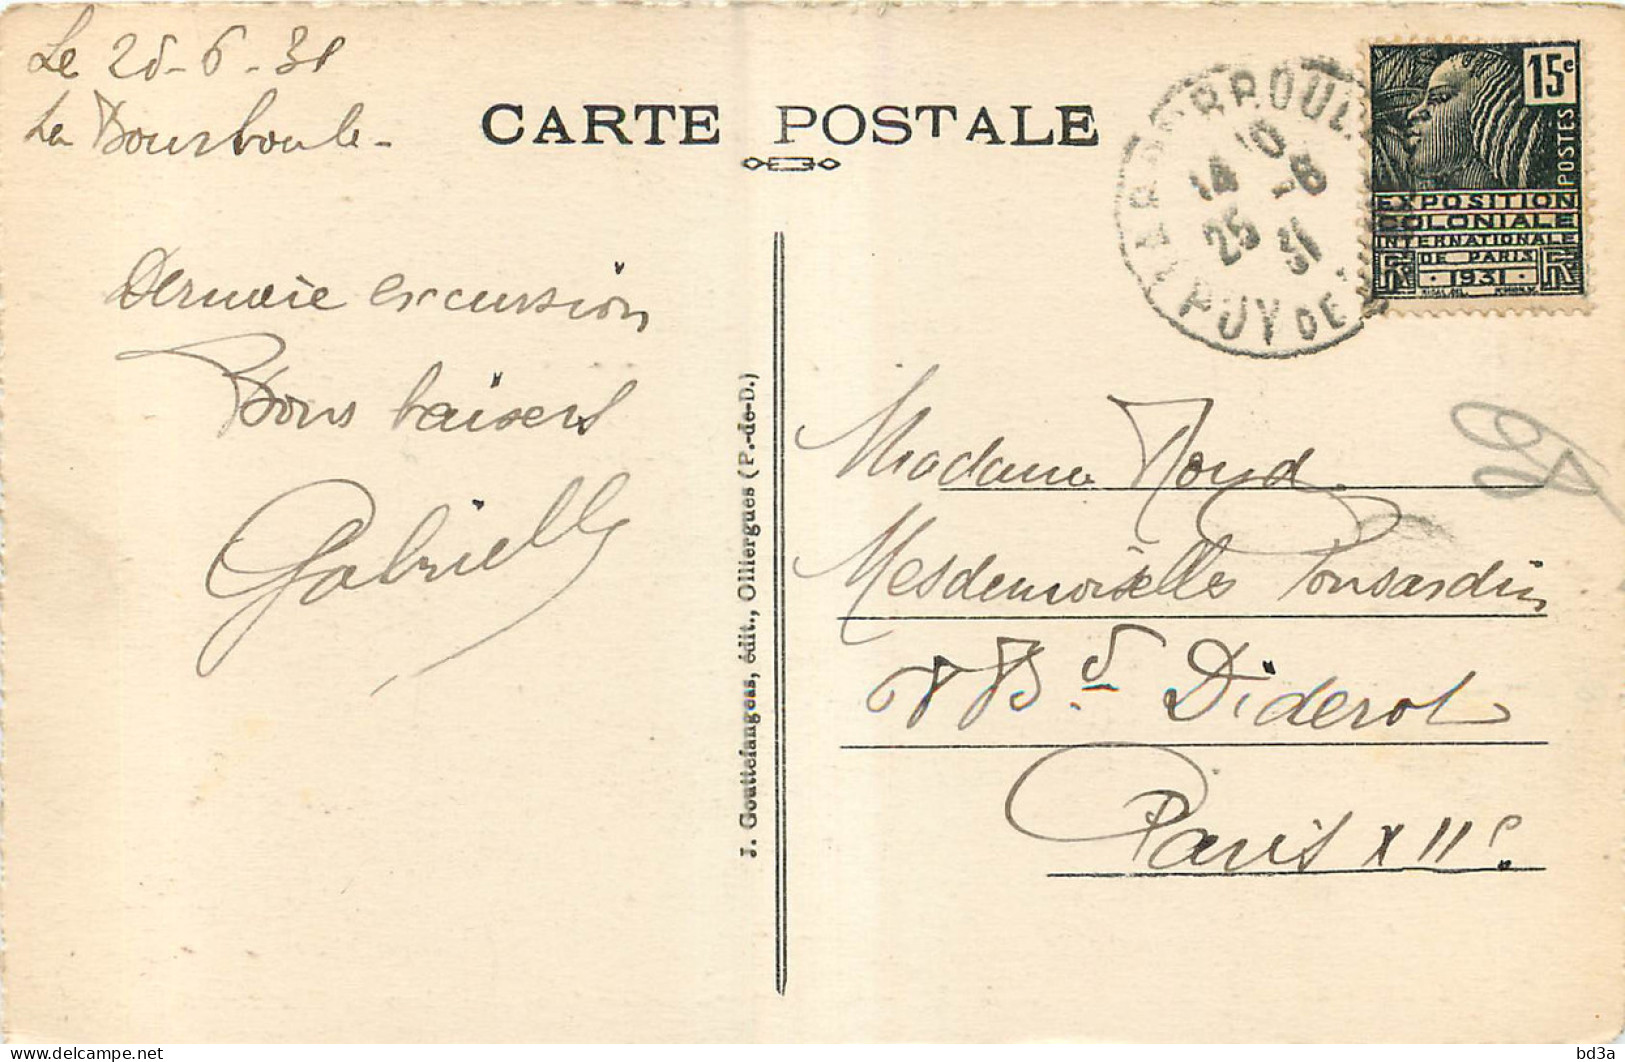 Le 25-6-31
La Bourboule-
CARTE POSTALE
Dernière excursion
Bons baisers
Gabrielle
J. Gouttefangeas, édit., Olliergues (P.-de-D.)
LA BOURBOULE
14 10
25 -6
31
PUY DE
15c
POSTES
EXPOSITION
COLONIALE
INTERNATIONALE
DE PARIS
1931
Madame
Mesdemoiselles Ponsardin
Bd. Diderot
Paris XIIe.
bd3a